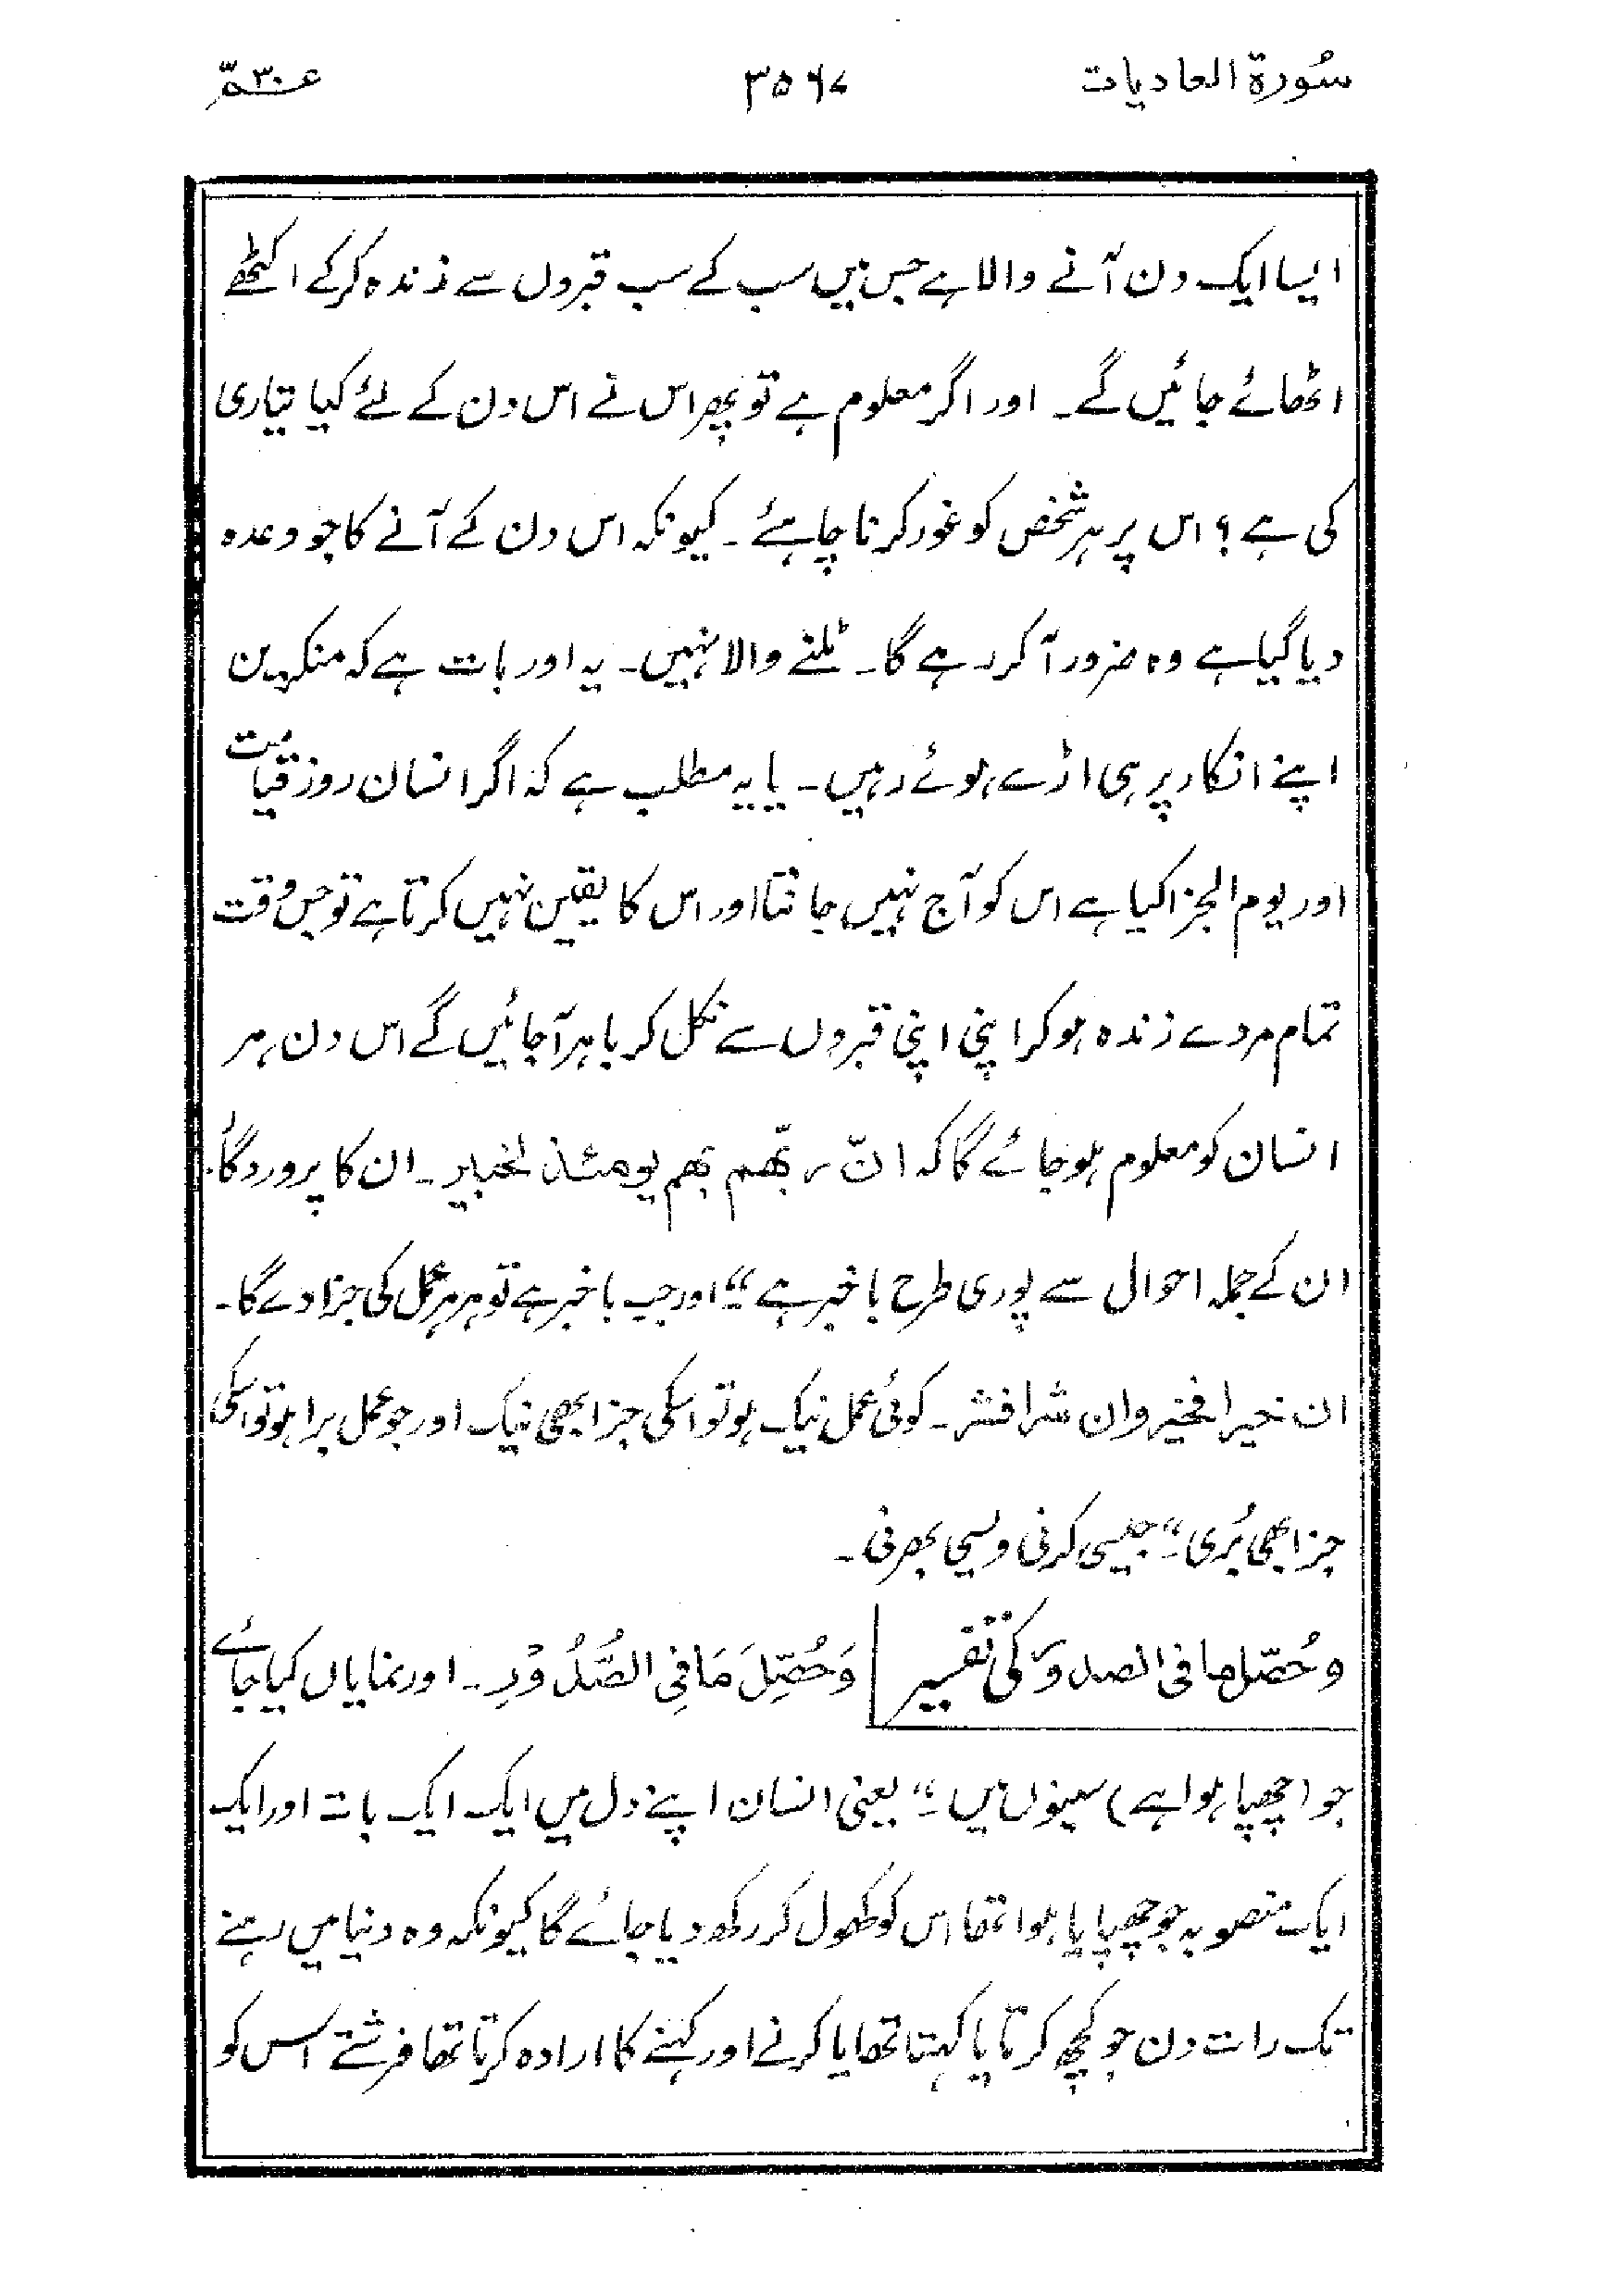 سُورۃ العادیات
۳۵۶۷
عـمّ ۳۰
ایسا ایک دن آنے والا ہے جس میں سب کے سب قبروں سے زندہ کرکے اکٹھے
اٹھائے جائیں گے۔ اور اگر معلوم ہے تو پھر اس نے اس دن کے لئے کیا تیاری
کی ہے؟ اس پر ہر شخص کو غور کرنا چاہئے۔ کیونکہ اس دن کے آنے کا جو وعدہ
دیا گیا ہے وہ ضرور آکر رہے گا۔ ٹلنے والا نہیں۔ یہ اور بات ہے کہ منکرین
اپنے انکار پر ہی اڑے ہوئے رہیں۔ یا یہ مطلب ہے کہ اگر انسان روز قیامت
اور یوم الجزا کیا ہے اس کو آج نہیں جانتا اور اس کا یقین نہیں کرتا ہے تو جس وقت
تمام مردے زندہ ہوکر اپنی اپنی قبروں سے نکل کر باہر آجائیں گے اس دن ہر
انسان کو معلوم ہوجائے گا کہ انّ ربّھم بھم یومئذ لخبیر۔ ان کا پروردگار
ان کے جملہ احوال سے پوری طرح باخبر ہے“ اور جب باخبر ہے تو ہر ہر عمل کی جزا دے گا۔
ان خیرا فخیر وان شرا فشر۔ کوئی عمل نیک ہو تو اسکی جزا بھی نیک اور جو عمل برا ہو تو اسکی
جزا بھی بُری۔“ جیسی کرنی ویسی بھرنی۔
وحُصّل ما فی الصدور کی تفسیر | وَحُصِّلَ مَا فِی الصُّدُوْرِ۔ اور نمایاں کیا جائے
جو (چھپا ہوا ہے) سینوں میں۔“ یعنی انسان اپنے دل میں ایک ایک بات اور ایک
ایک منصوبہ جو چھپایا ہوا تھا اس کو کھول کر رکھ دیا جائے گا کیونکہ وہ دنیا میں رہنے
تک رات دن جو کچھ کرتا یا کہتا تھا یا کرنے اور کہنے کا ارادہ کرتا تھا فرشتے اس کو